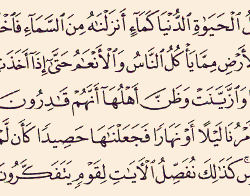 ٱلْحَيَوٰةِ ٱلدُّنْيَا كَمَآءٍ أَنزَلْنَٰهُ مِنَ ٱلسَّمَآءِ
مِمَّا يَأْكُلُ ٱلنَّاسُ وَٱلْأَنْعَٰمُ حَتَّىٰٓ إِذَآ
وَٱزَّيَّنَتْ وَظَنَّ أَهْلُهَآ أَنَّهُمْ قَٰدِرُونَ
أَمْرُنَا لَيْلًا أَوْ نَهَارًا فَجَعَلْنَٰهَا حَصِيدًا كَأَن
كَذَٰلِكَ نُفَصِّلُ ٱلْءَايَٰتِ لِقَوْمٍ يَتَفَكَّرُونَ